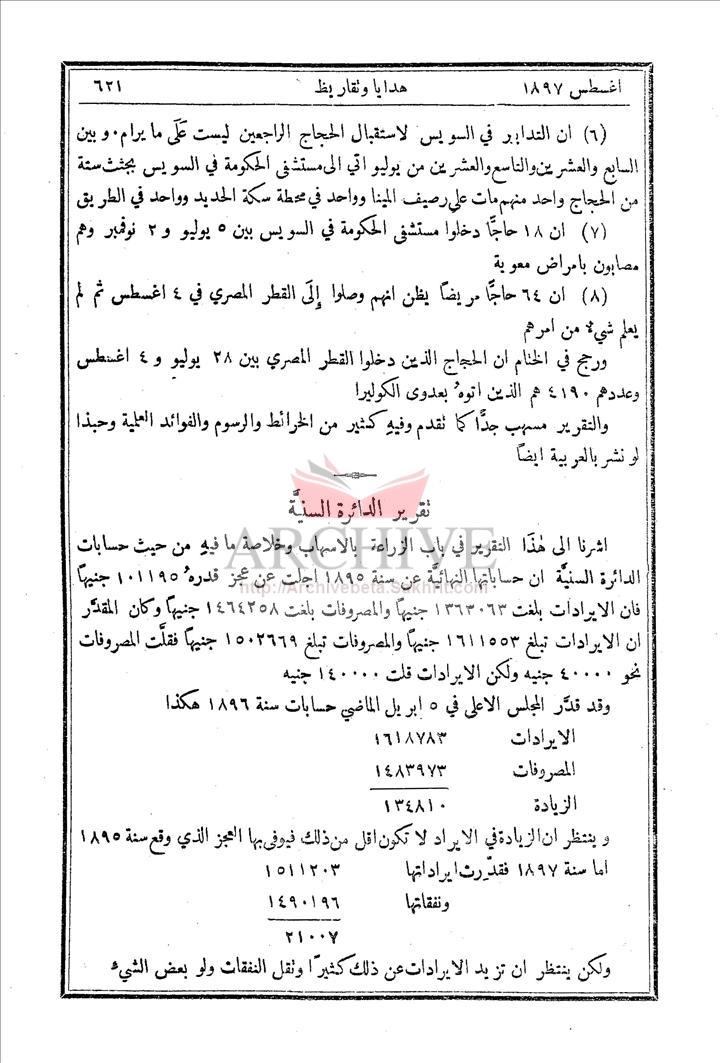 اغسطس ١٨٩٧ هدايا وتقاريظ ٦٢١
(٦) ان التدابير في السويس لاستقبال الحجاج الراجعين ليست عَلَى ما يرام. و بين
السابع والعشرين والتاسع والعشرين من يوليو اتي الى مستشفى الحكومة في السويس بجثث ستة
من الحجاج واحد منهم مات على رصيف المينا وواحد في محطة سكة الحديد وواحد في الطريق
(٧) ان ١٨ حاجًّا دخلوا مستشفى الحكومة في السويس بين ٥ يوليو و ٢ نوفمبر وهم
مصابون بامراض معوية
(٨) ان ٦٤ حاجًّا مريضًا يظن انهم وصلوا إِلَى القطر المصري في ٤ اغسطس ثم لم
يعلم شيءٌ من امرهم
ورجح في الختام ان الحجاج الذين دخلوا القطر المصري بين ٢٨ يوليو و ٤ اغسطس
وعددهم ٤١٩٠ هم الذين اتوهُ بعدوى الكوليرا
والتقرير مسهب جدًّا كما تقدم وفيهِ كثير من الخرائط والرسوم والفوائد العلمية وحبذا
لو نشر بالعربية ايضًا
تقرير الدائرة السنيَّة
اشرنا الى هٰذَا التقرير في باب الزراعة بالاسهاب وخلاصة ما فيهِ من حيث حسابات
الدائرة السنيَّة ان حساباتها النهائيَّة عن سنة ١٨٩٥ اجلت عن عجز قدرهُ ١٠١١٩٥ جنيهًا
فان الايرادات بلغت ١٣٦٣٠٦٣ جنيهًا والمصروفات بلغت ١٤٦٤٢٥٨ جنيهًا وكان المقدَّر
ان الايرادات تبلغ ١٦١١٥٥٣ جنيهًا والمصروفات تبلغ ١٥٠٢٦٦٩ جنيهًا فقلَّت المصروفات
نحو ٤٠٠٠٠ جنيه ولكن الايرادات قلت ١٤٠٠٠٠ جنيه
وقد قدَّر المجلس الاعلى في ٥ ابريل الماضي حسابات سنة ١٨٩٦ هكذا
الايرادات ١٦١٨٧٨٣
المصروفات ١٤٨٣٩٧٣
الزيادة ١٣٤٨١٠
و ينتظر ان الزيادة في الايراد لا تكون اقل من ذلك فيوفى بها العجز الذي وقع سنة ١٨٩٥
اما سنة ١٨٩٧ فقدِّرت ايراداتها ١٥١١٢٠٣
ونفقاتها ١٤٩٠١٩٦
٢١٠٠٧
ولكن ينتظر ان تزيد الايرادات عن ذلك كثيرًا وتقل النفقات ولو بعض الشيءِ
ARCHIVE
http://Archivebeta.Sakhrit.com